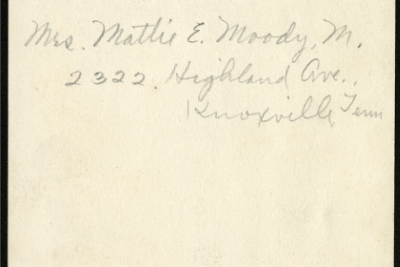 Mrs. Mattie E. Moody, M.
2322 Highland Ave.,
Knoxville, Tenn